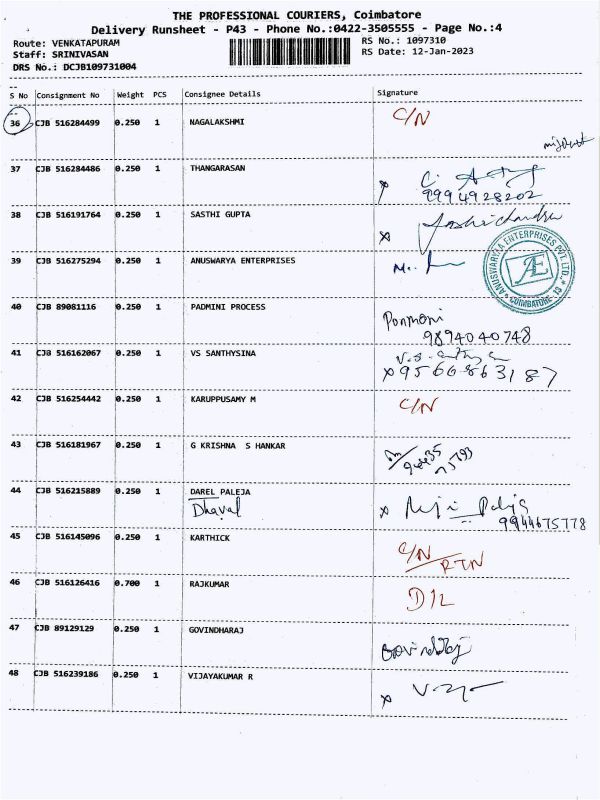 THE PROFESSIONAL COURIERS, Coimbatore
Delivery Runsheet - P43 - Phone No.:0422-3505555 - Page No.:4
Route: VENKATAPURAM
RS No.: 1097310
Staff: SRINIVASAN
RS Date: 12-Jan-2023
DRS No.: DCJB109731004
S No Consignment No Weight PCS Consignee Details Signature
36 CJB 516284499 0.250 1 NAGALAKSHMI C/N
37 CJB 516284486 0.250 1 THANGARASAN
9994928202
38 CJB 516191764 0.250 1 SASTHI GUPTA
39 CJB 516275294 0.250 1 ANUSWARYA ENTERPRISES
ANUSWARYAA ENTERPRISES PVT. LTD.,
AE
COIMBATORE - 13
40 CJB 89081116 0.250 1 PADMINI PROCESS Ponmani
9894040748
41 CJB 516162067 0.250 1 VS SANTHYSINA
x 9566863187
42 CJB 516254442 0.250 1 KARUPPUSAMY M C/N
43 CJB 516181967 0.250 1 G KRISHNA S HANKAR
44 CJB 516215889 0.250 1 DAREL PALEJA
Dhaval
x Paleja
9944675778
45 CJB 516145096 0.250 1 KARTHICK C/N
RTN
46 CJB 516126416 0.700 1 RAJKUMAR D/L
47 CJB 89129129 0.250 1 GOVINDHARAJ
48 CJB 516239186 0.250 1 VIJAYAKUMAR R